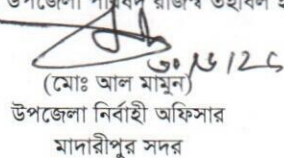 উপজেলা পরিষদ রাজস্ব তহবিল
(মোঃ আল মামুন)
উপজেলা নির্বাহী অফিসার
মাদারীপুর সদর